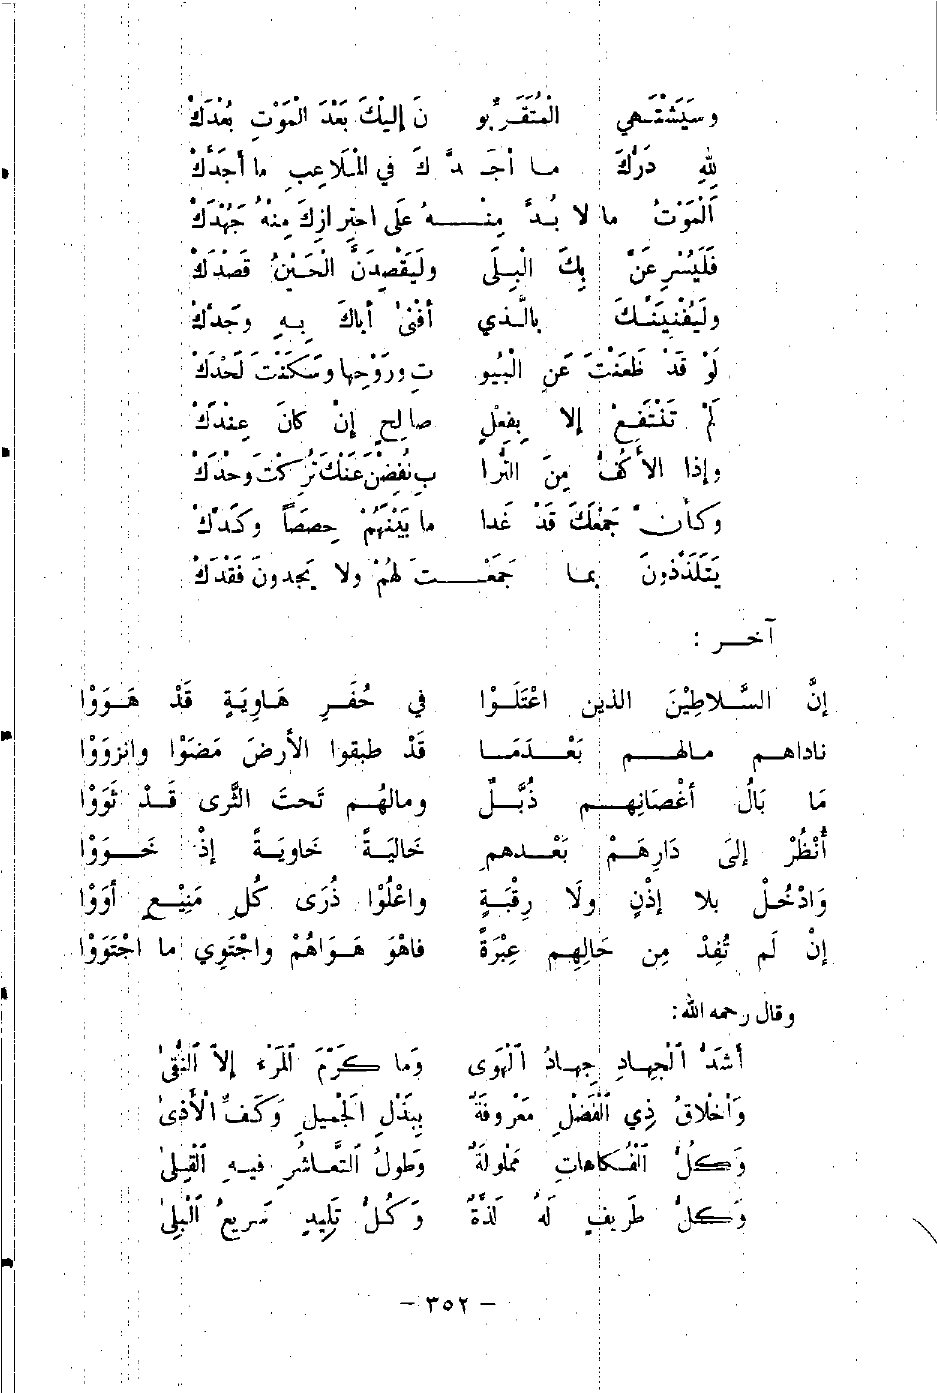 وسَيَشْتَهي الْمُتَقَرِّبو نَ إليْكَ بَعْدَ الْمَوْتِ بُعْدَكْ
لِلهِ دَرُّكَ ما أجَدَّكَ في الْمَلَاعِبِ ما أجَدَّكْ
اَلْمَوْتُ ما لا بُدَّ مِنْهُ عَلَى احتِرازِكَ مِنْهُ جَهْدَكْ
فَلَيُسْرِعَنَّ بِكَ الْبِلَى ولَيَقْصِدَنَّ الْحَيْنُ قَصْدَكْ
ولَيُفْنِيَنَّكَ بالَّذي أفْنىٰ أباكَ بِهِ وجَدَّكْ
لَوْ قَدْ ظَعَنْتَ عَنِ الْبُيو تِ ورَوْحِها وسَكَنْتَ لَحْدَكْ
لَمْ تَنْتَفِعْ إلا بِفِعْلٍ صالِحٍ إنْ كانَ عِنْدَكْ
وإذا الأكُفُّ مِنَ التُّرا بِ نُفِضْنَ عَنْكَ تُرِكْتَ وحْدَكْ
وَكأنَّ جَمْعَكَ قَدْ غَدا ما بَيْنَهُمْ حِصَصاً وكَدَّكْ
يَتَلَذَّذونَ بما جَمَعْتَ لهُمْ ولا يَجِدونَ فَقْدَكْ
آخر :
إنَّ السَّلاطِيْنَ الذين اعْتَلَوْا في حُفَرِ هَاوِيَةٍ قَدْ هَوَوْا
ناداهم مالهم بَعْدَمَا قَدْ طبقوا الأرضَ مَضَوْا وانزوَوْا
مَا بَالُ أغْصَانِهِم ذُبَّلٌ ومالهُم تَحتَ الثَّرى قَدْ ثَوَوْا
أُنْظُرْ إلىَ دَارِهَمْ بَعْدهمِ خَاليَةً خَاويَةً إذْ خَوَوْا
وَادْخُلْ بلا إذْنٍ ولَا رِقْبَةٍ واعْلُوْا ذُرَى كُلِ مَنِيْعٍ أوَوْا
إنْ لَم تُفِدْ مِن حَالِهِم عِبْرَةً فاهْوَ هَوَاهُمْ واجْتَوِي ما اجْتَوَوْا
وقال رحمه الله:
أشَدُّ اَلْجِهادِ جِهادُ اَلْهَوَى وَما كَرَّمَ اَلمَرْءَ إلاَّ اَلتُّقىٰ
وَأخْلاقُ ذِي اَلْفَضْلِ مَعْروفَةٌ بِبَذْلِ الْجَميلِ وَكَفِّ الْأذىٰ
وَكلُّ اَلْفُكاهاتِ مَملولَةٌ وَطولُ اَلتَّعاشُرِ فيهِ اَلْقِلىٰ
وَكلُّ طَريفٍ لَهُ لَذَّةٌ وَكُلُّ تَليدٍ سَريعُ اَلْبِلىٰ
– ٣٥٢ –